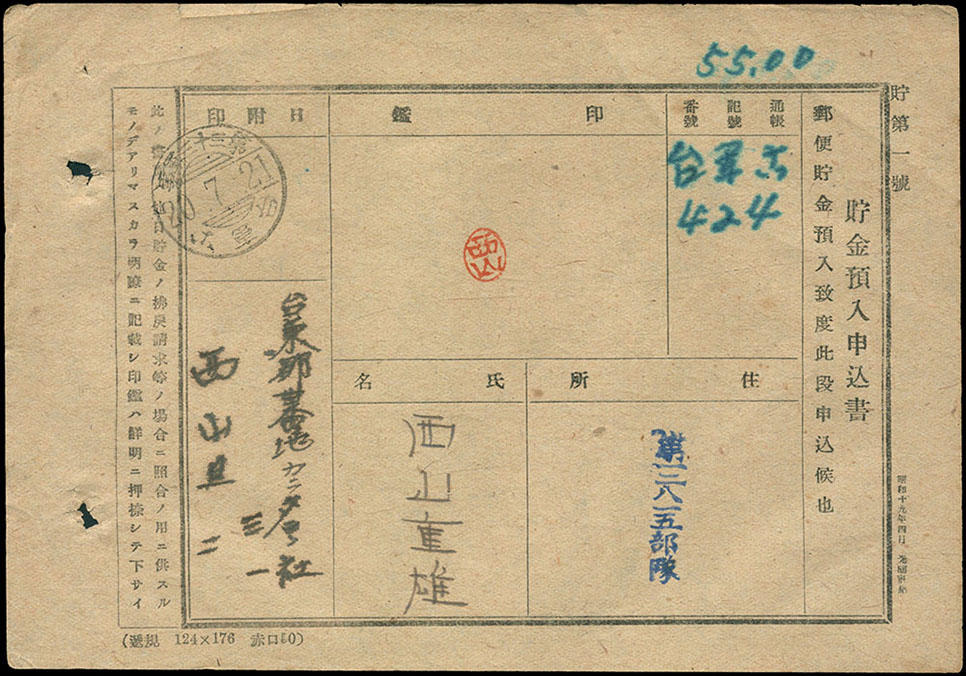 貯第一號
55.00
貯金預入申込書
昭和十九年四月
郵便貯金預入致度此段申込候也
通帳
記號
番號
台軍六
424
印鑑
西山
住所
第一三八一五部隊
氏名
西山重雄
日附印
20.7.21
台東郡
番地
社
西山
此ノ
貯金ノ拂戻請求等ノ場合ニ照合ノ用ニ供スル
モノデアリマスカラ明瞭ニ記載シ印鑑ハ鮮明ニ押捺シテ下サイ
124×176